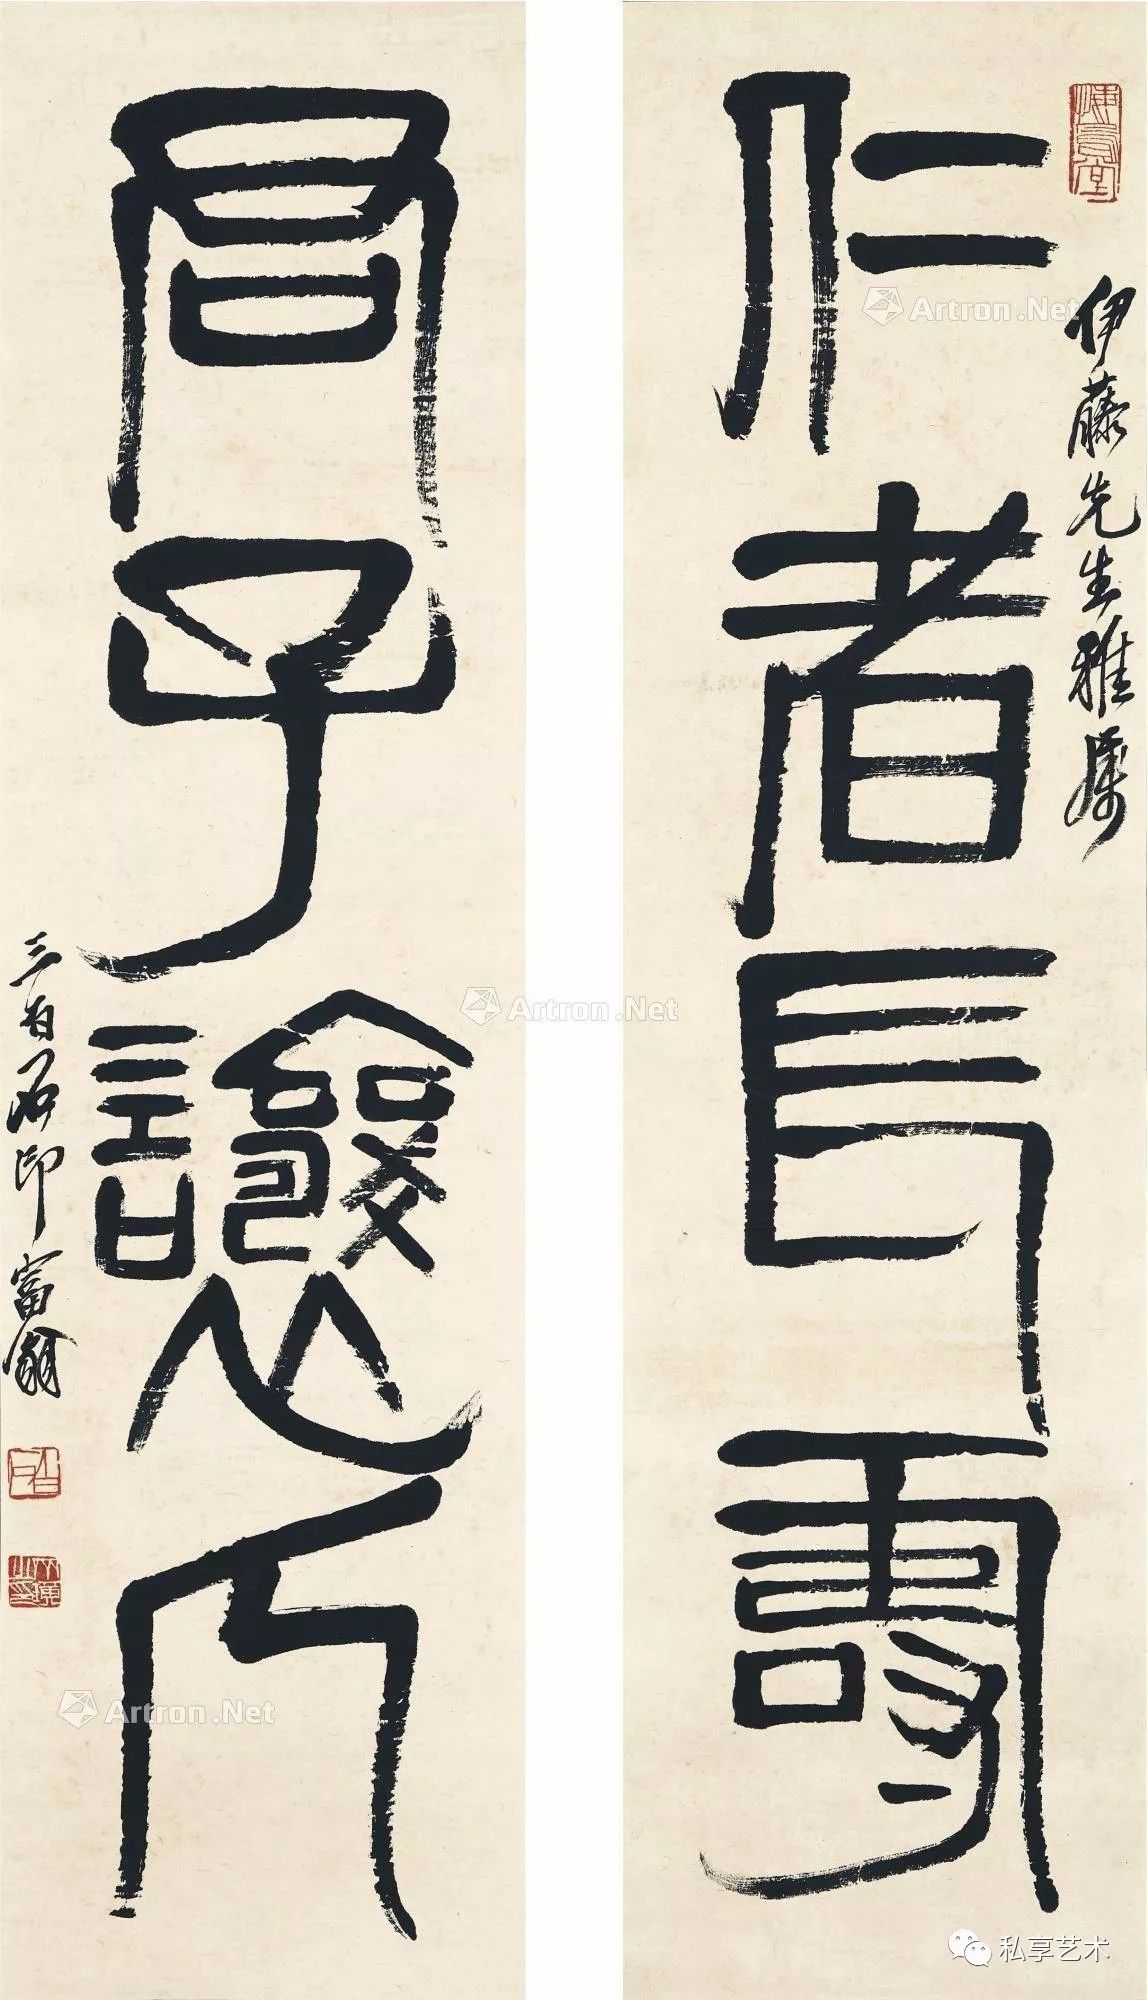 悔烏堂
伊藤先生雅屬
仁者長壽
君子讓人
三百石印富翁
Artron.Net
Artron.Net
Artron.Net
私享艺术